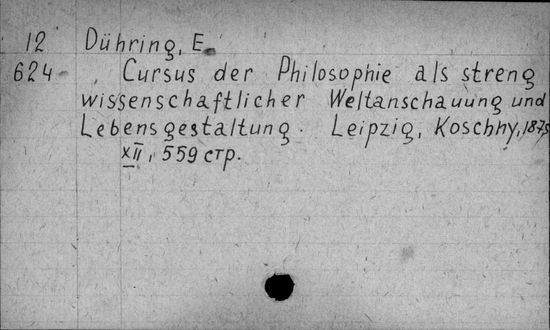 12 Dühring, E.
624 Cursus der Philosophie als streng
wissenschaftlicher Weltanschauung und
Lebensgestaltung. Leipzig, Koschny, 1875
XII, 559 стр.